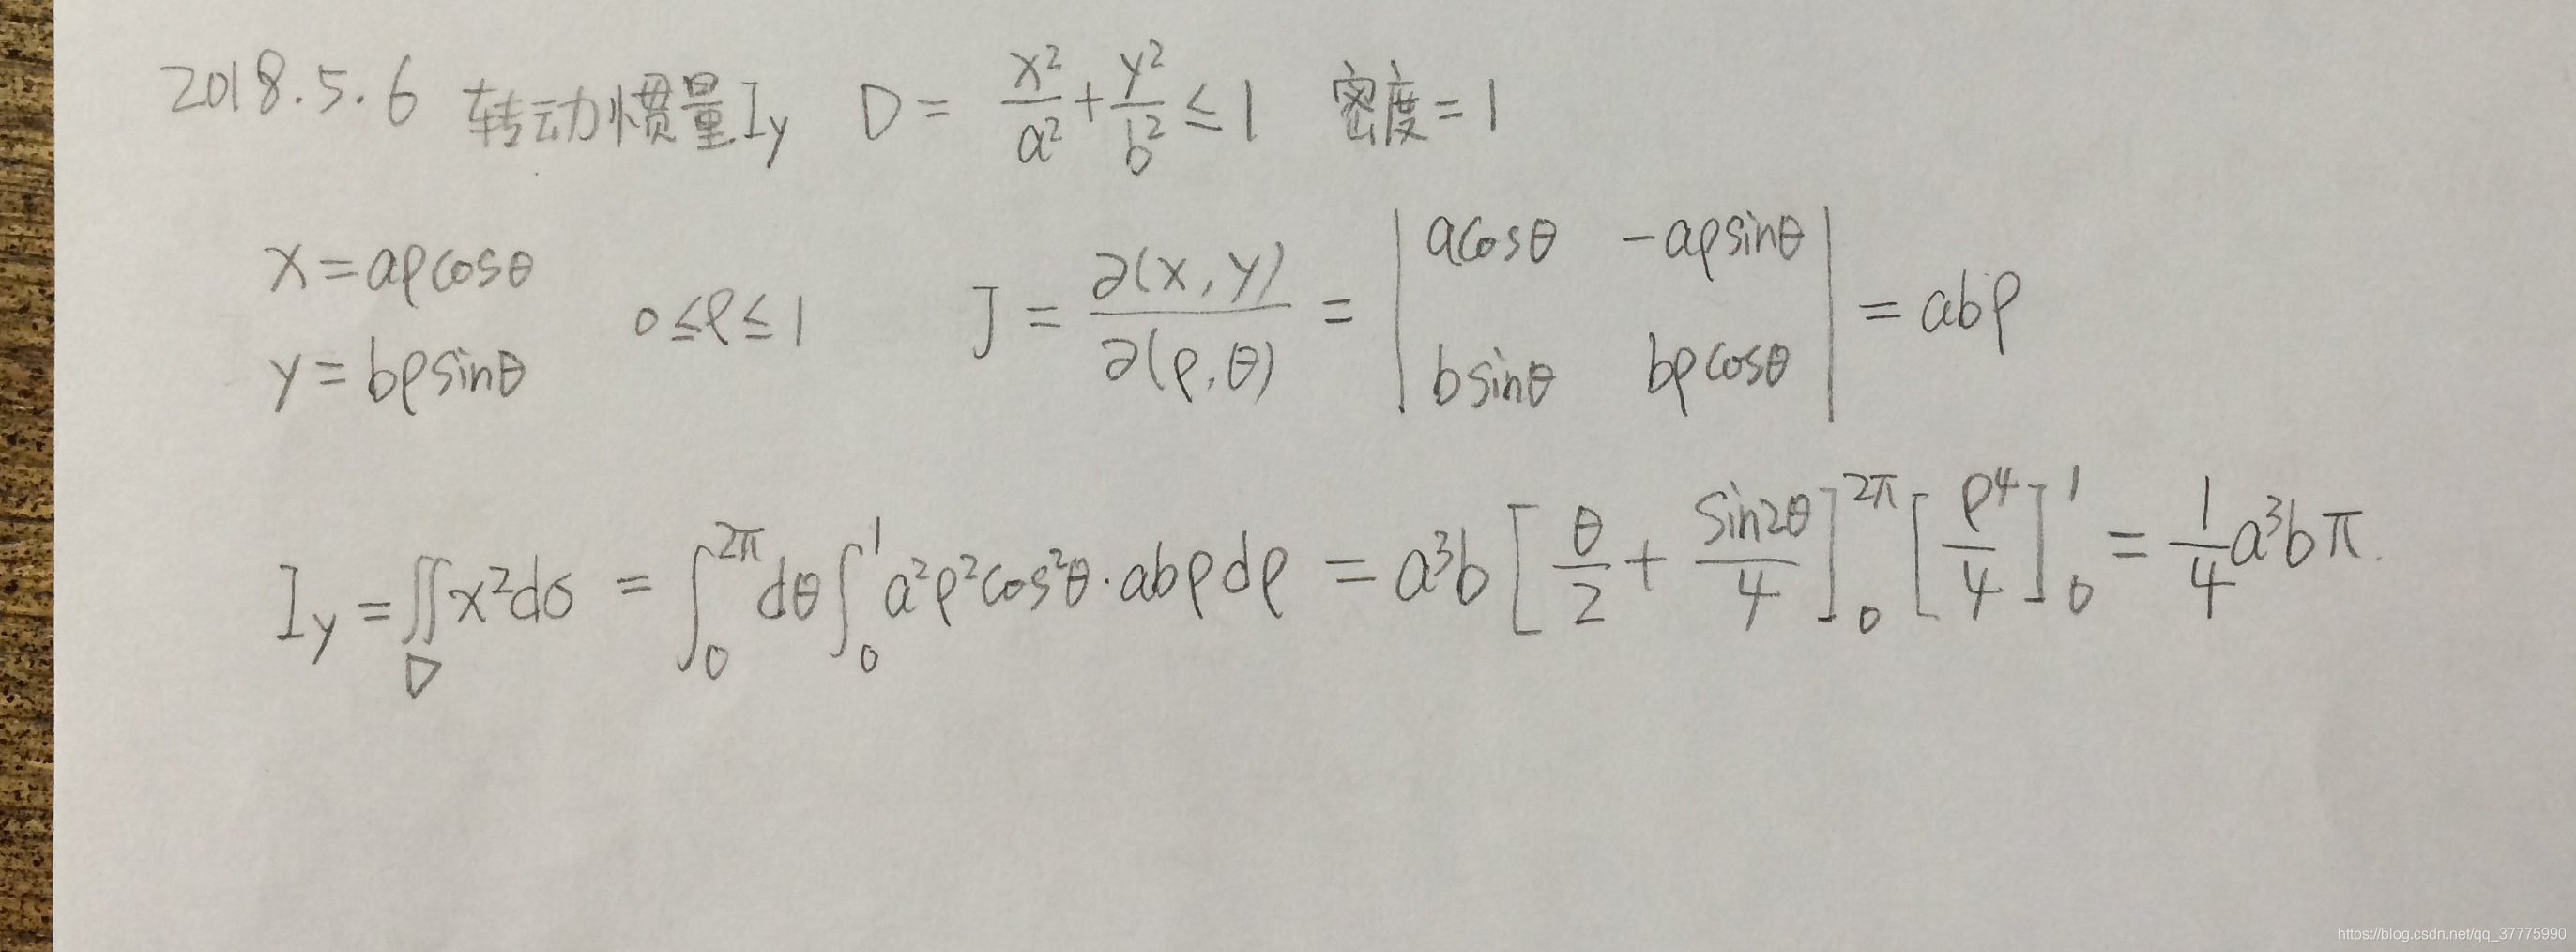 2018.5.6 转动惯量 I_y D = x²/a² + y²/b² ≤ 1 密度 = 1
x = aρcosθ
y = bρsinθ
0 ≤ ρ ≤ 1
J = ∂(x, y)/∂(ρ, θ) = | acosθ -aρsinθ |
| bsinθ bρcosθ | = abρ
I_y = ∬_D x²dσ = ∫_0^{2π} dθ ∫_0^1 a²ρ²cos²θ · abρdρ = a³b [θ/2 + sin2θ/4]_0^{2π} [ρ⁴/4]_0^1 = 1/4 a³bπ.
https://blog.csdn.net/qq_37775990